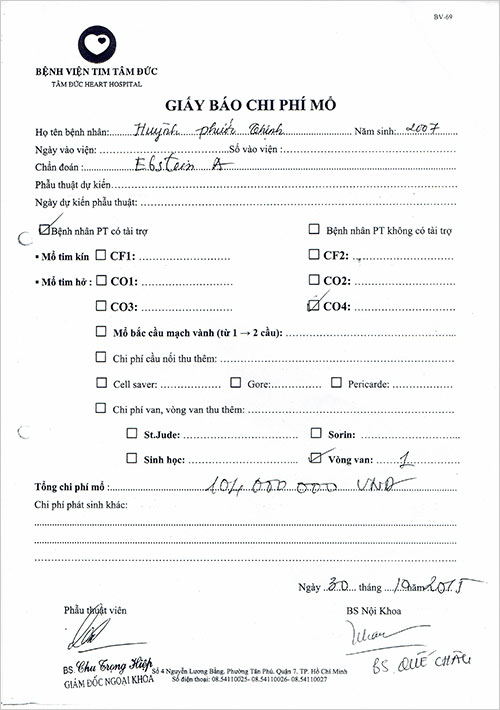 BV-69
BỆNH VIỆN TIM TÂM ĐỨC
TÂM ĐỨC HEART HOSPITAL
GIẤY BÁO CHI PHÍ MỔ
Họ tên bệnh nhân: Huỳnh Phước Thịnh Năm sinh: 2007
Ngày vào viện: Số vào viện :
Chẩn đoán : Ebstein A
Phẫu thuật dự kiến
Ngày dự kiến phẫu thuật:
☑ Bệnh nhân PT có tài trợ ☐ Bệnh nhân PT không có tài trợ
▪ Mổ tim kín ☐ CF1: ☐ CF2:
▪ Mổ tim hở : ☐ CO1: ☐ CO2:
☐ CO3: ☑ CO4:
☐ Mổ bắc cầu mạch vành (từ 1 → 2 cầu):
☐ Chi phí cầu nối thu thêm:
☐ Cell saver: ☐ Gore: ☐ Pericarde:
☐ Chi phí van, vòng van thu thêm:
☐ St.Jude: ☐ Sorin:
☐ Sinh học: ☑ Vòng van: 1
Tổng chi phí mổ : 104 000 000 VNĐ
Chi phí phát sinh khác:
Ngày 30 tháng 10 năm 2015
Phẫu thuật viên BS Nội Khoa
BS. Chu Trọng Hiệp
GIÁM ĐỐC NGOẠI KHOA
BS QUẾ CHÂU
Số 4 Nguyễn Lương Bằng, Phường Tân Phú, Quận 7, TP. Hồ Chí Minh
Số điện thoại: 08.54110025- 08.54110026- 08.54110027